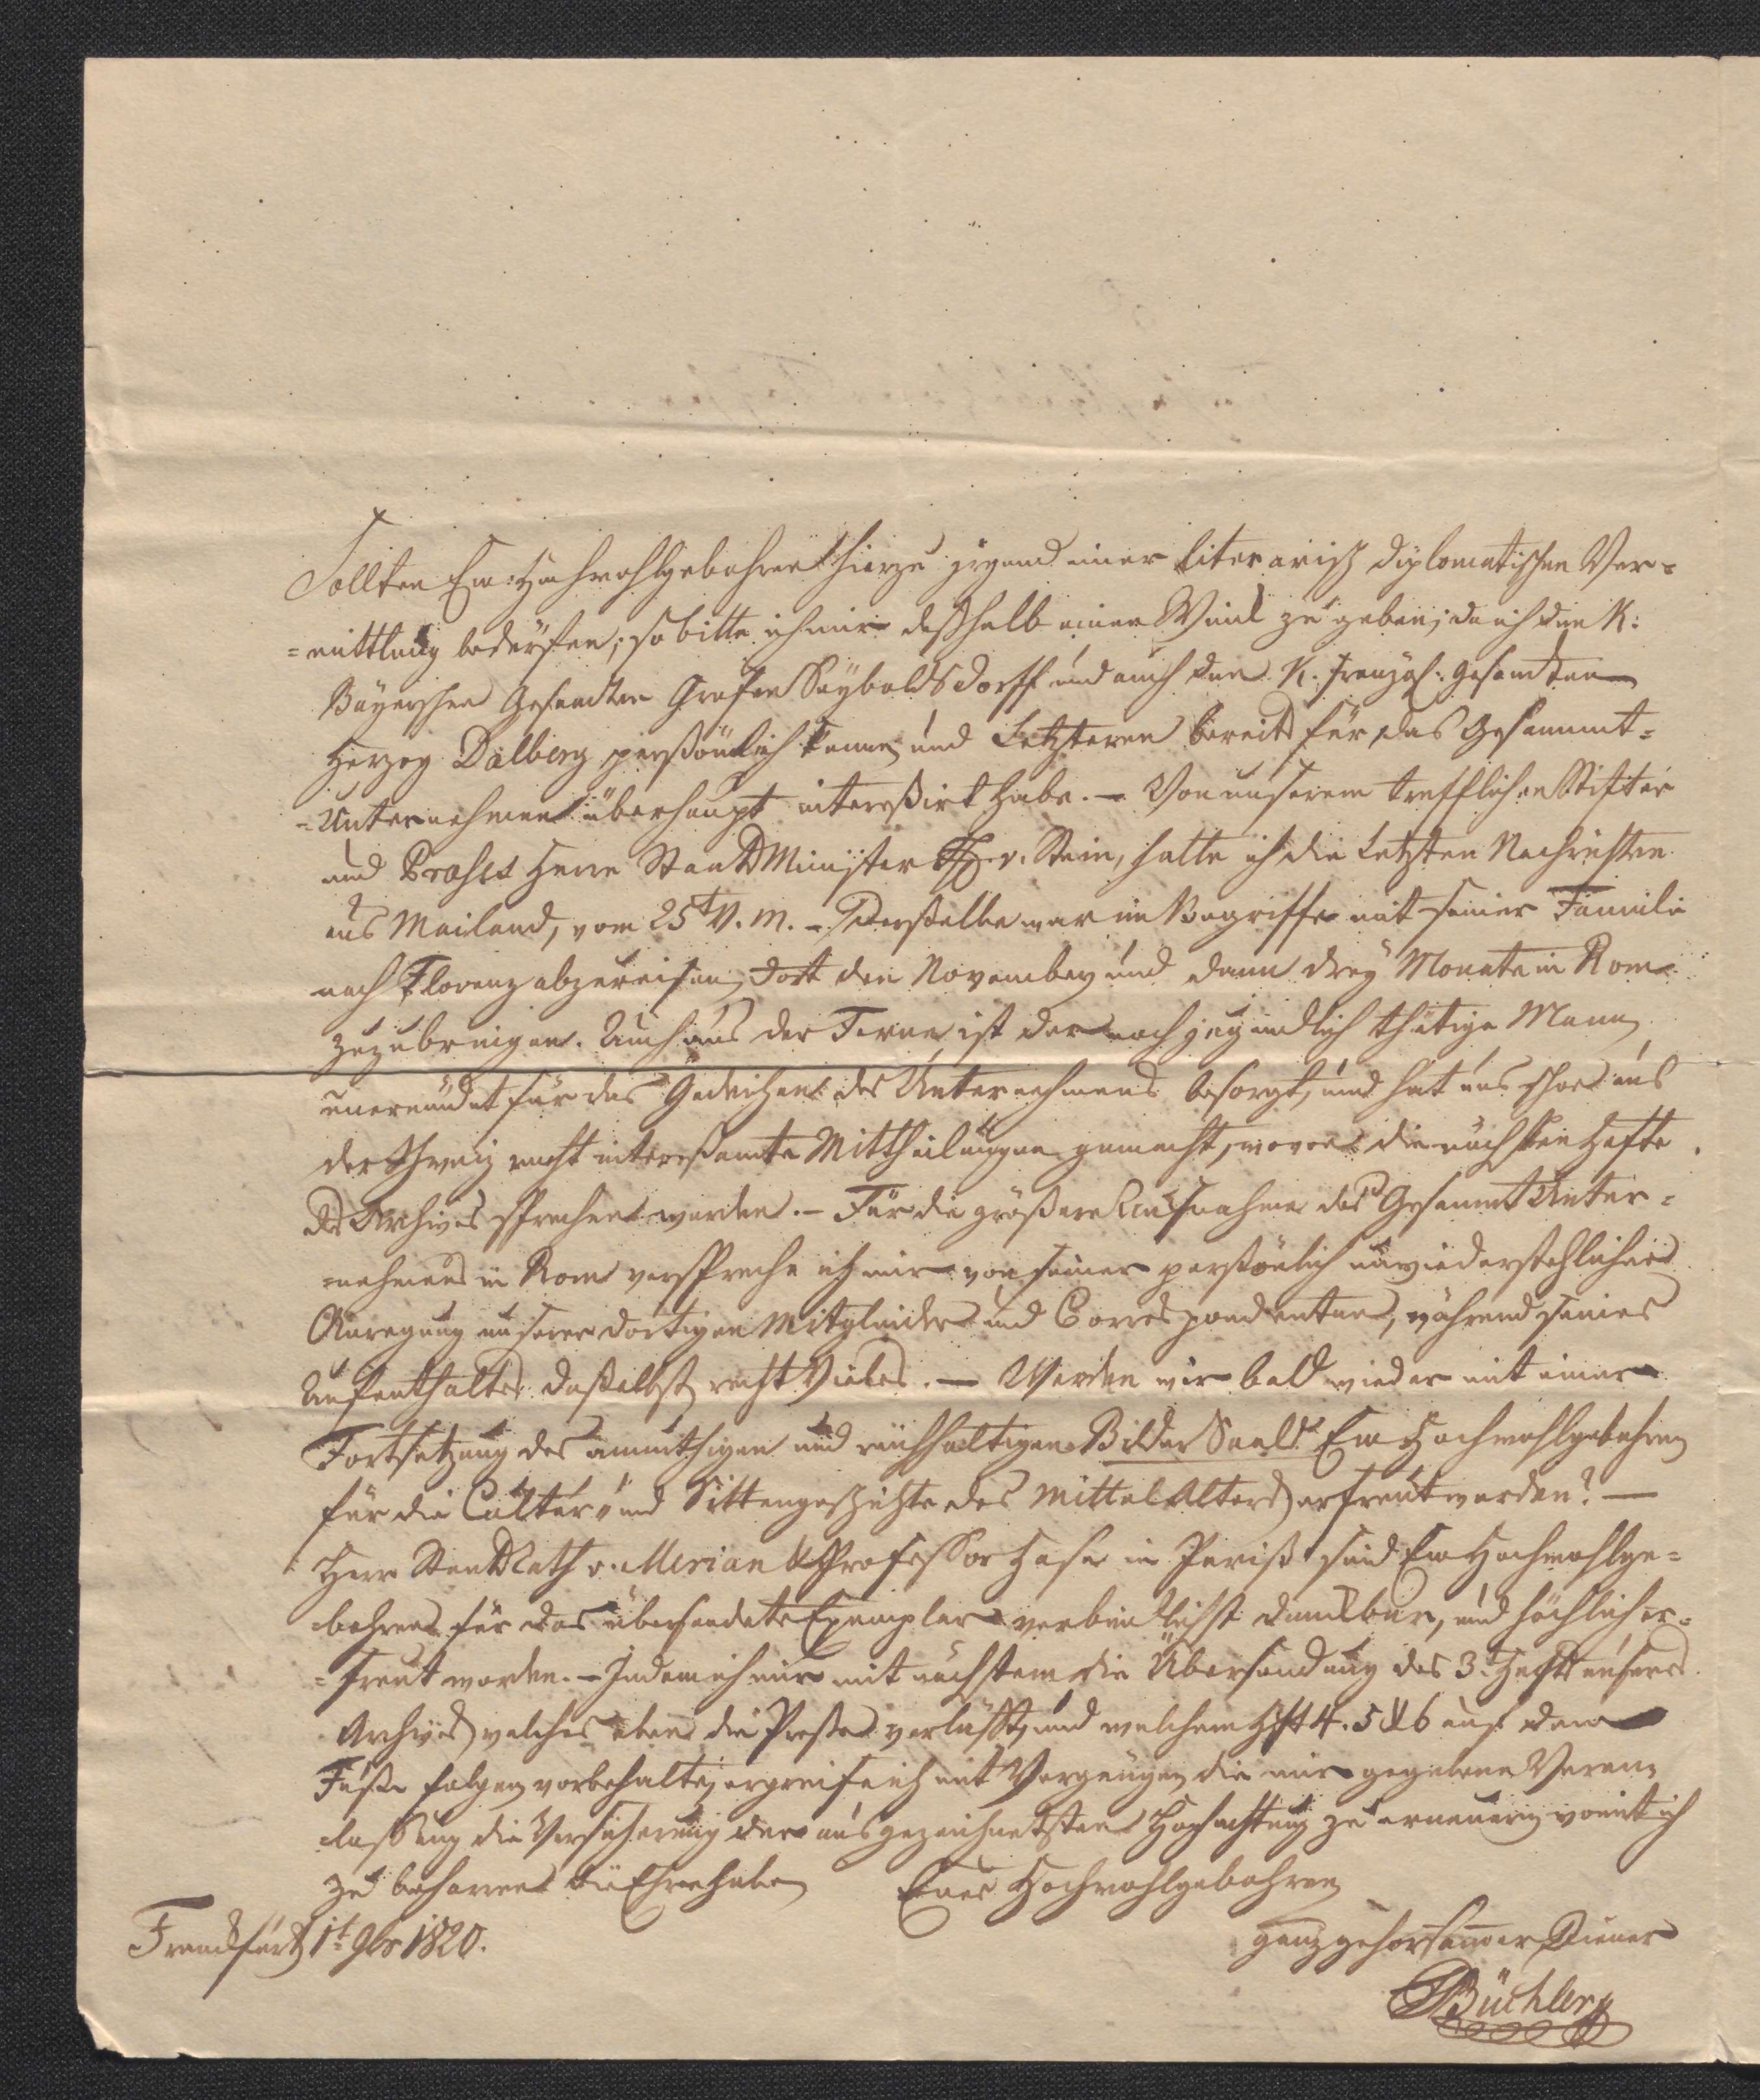 Sollten Ew: Hochwohlgebohren hierzu irgend einer literarisch diplomatischen Ver=
=mittlung bedürfen; so bitte ich mir deßhalb einen Wink zu geben; da ich den K:
Bayerschen Gesandten Grafen Seyboldsdorff und auch den K. französ: Gesandten
Herzog Dalberg persönlich kenne, und Letzteren bereits für das Gesammt=
=Unternehmen überhaupt interessirt habe. – Von unserem trefflichen Stifter
und Präses Herrn Staats Minister v. Stein, hatte ich die letzten Nachrichten
aus Mailand, vom 25t v. M. – Derselbe war im Begriffe mit seiner Familie
nach Florenz abzureisen, dort den November, und dann drey Monate in Rom
zuzubringen. Auch aus der Ferne, ist der noch jugendlich thätige Mann,
unermüdet für das Gedeihen des Unternehmens besorgt, und hat uns schon aus
der Schweiz recht interessante Mittheilungen gemacht, wovon die nächsten Hefte
des Archives sprechen werden. – Für die größere Aufnahme des Gesammt Unter=
=nehmens in Rom verspreche ich mir von seiner persönlich unwiederstehlichen
Anregung unserer dortigen Mitglieder und Correspondenten, während seines
Aufenthaltes daselbst, recht Vieles. – Werden wir bald wieder mit einer
Fortsetzung des anmuthigen und reichhaltigen Bilder Saals Ew Hochwohlgebohren
für die Cultur und Sittengeschichte des Mittel Alters, erfreut werden? –
Herr Staats Rath v. Merian & Professor Hase in Pariß sind Ew Hochwohlge=
bohren für das übersendete Exemplar verbindlichst dankbar, und höchlich er=
=freut worden. – Indem ich mir mit nächstem die Übersendung des 3. Hefts unseres
Archivs, welches eben die Presse verläßt, und welchem Heft 4. 5 & 6 auf dem
Fuße folgen, vorbehalte, ergreife ich mit Vergnügen, die mir gegebene Veran=
lassung die Versicherung der ausgezeichnetsten Hochachtung zu erneuern, womit ich
zu beharren die Ehre habe Euer Hochwohlgebohren
Franckfurt 1t 9br 1820.
ganz gehorsamer Diener
Büchler